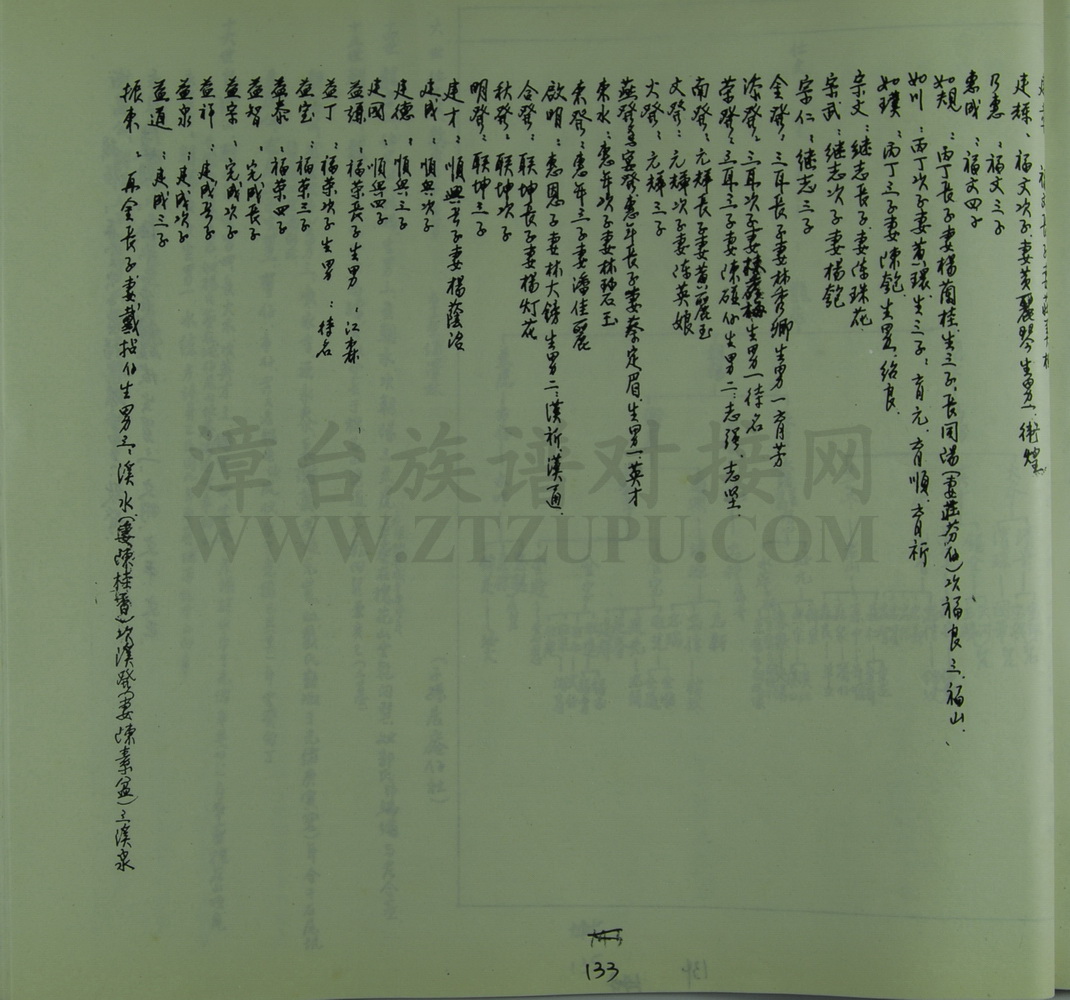 建輝、福文次子妻黃麗琴生男一:衛煌
乃惠:福文三子
惠成:福文四子
如規:丙丁長子妻楊蘭桂.生三子.長開陽(妻莊芬仙)次福良三.福山.
如川:丙丁次子妻黃環.生三子:育元.育順.育祈
如璞:丙丁三子妻陳匏.生男.紹良.
宗文:继志長子.妻陈珠花.
宗武:继志次子妻楊匏
宗仁:继志三子
金發:三耳長子妻林秀卿生男一育芳
添發:三耳次子妻 生男一待名
榮發:三耳三子妻陳碩仔生男二:志强.志坚.
南發:元輝長子妻黃麗玉
文發:元輝次子妻陈英娘
火發:元輝三子
燕發 惠年長子妻蔡定眉.生男一.英才
東水:惠年次子妻林碧玉
東發:惠年三子妻潘佳麗
啟明:惠恩子妻林大 生男二:漢祈.漢通.
合發:联坤長子妻楊灯花
秋發:联坤次子
明發:联坤三子
建才:順興長子妻楊蔭治
建成:順興次子
建德:順興三子
建國:順興四子
益源:福榮長子生男:江森
益丁:福榮次子生男:待名
益宝:福榮三子
益泰:福榮四子
益智:完成長子
益宗:完成次子
益祥:建成長子
益泉:建成次子
益通:建成三子
振東:再金長子妻戴拈仔生男三:溪水(妻陳桂香)次溪發(妻陳素盆)三溪泉
133
漳台族谱对接网
WWW.ZTZUPU.COM